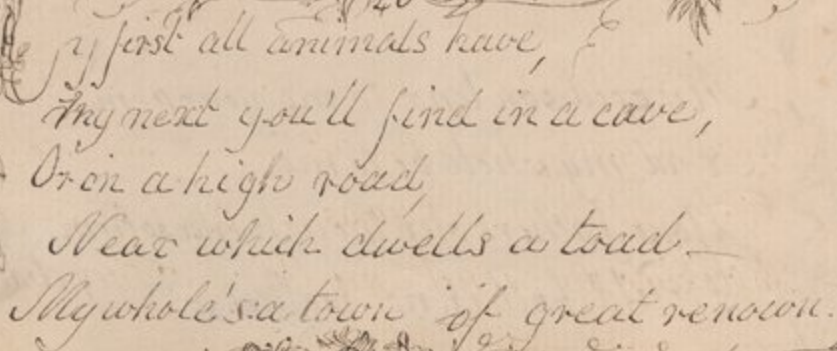 40
y first all animals have,
My next you'll find in a cave,
Or on a high road,
Near which dwells a toad. —
My whole's a town of great renown.